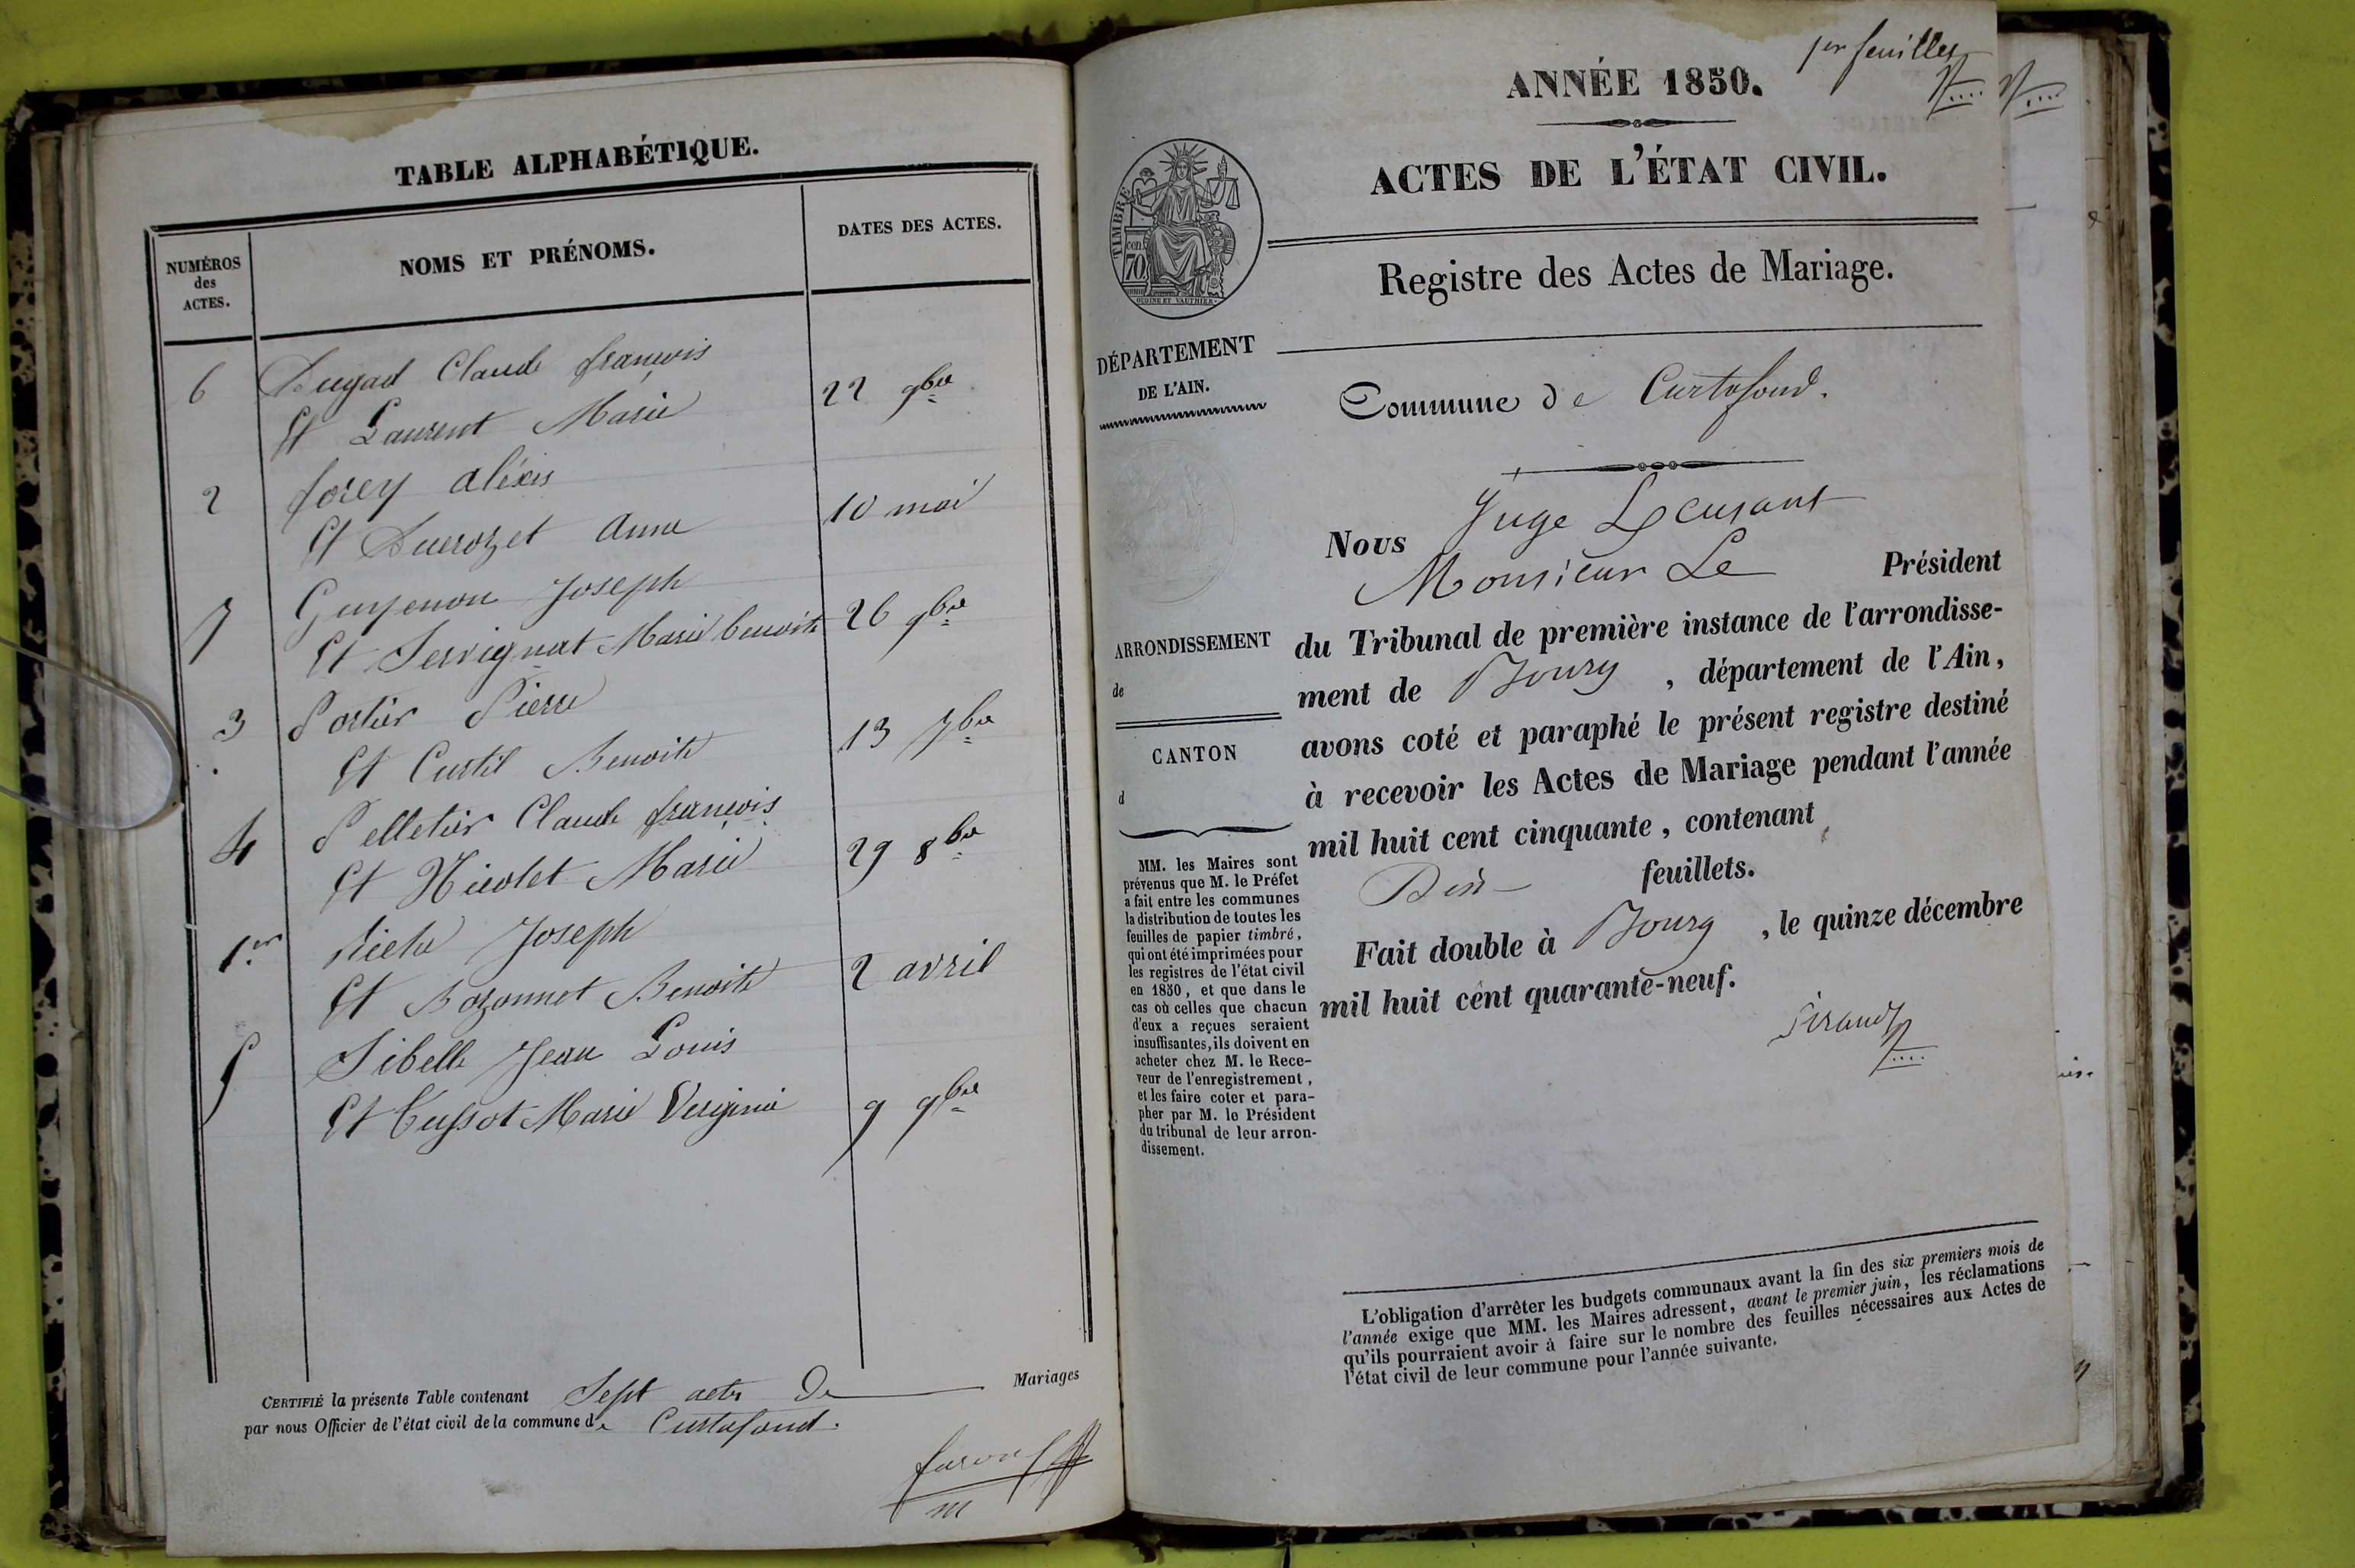 TABLE ALPHABÉTIQUE.
NUMÉROS des ACTES.
NOMS ET PRÉNOMS.
DATES DES ACTES.
6 Dugad Claude françois
Et Laurent Marie 22 9bre
2 forey aléxis
Et Ducrozet Anne 10 mai
7 Guyenon Joseph
Et Servignat Marie benoite 26 9bre
3 Portier Pierre
Et Curtil Benoite 13 7bre
4 Pelletier Claude françois
Et Nicolet Marie 29 8bre
1er Riche Joseph
Et Bozonnet Benoite 2 avril
5 Sibelle Jean Louis
Et Cussot Marie Verginie 9 9bre
CERTIFIÉ la présente Table contenant Sept actes De Mariages
par nous Officier de l'état civil de la commune de Curtafond.
1er feuillet
ANNÉE 1850.
ACTES DE L'ÉTAT CIVIL.
TIMBRE
cen.
70
OUDINÉ ET VAUTHIER
Registre des Actes de Mariage.
DÉPARTEMENT
DE L'AIN.
Commune de Curtafond.
Juge
Nous
Monsieur Le Président
ARRONDISSEMENT
de
CANTON
d
du Tribunal de première instance de l'arrondisse-
ment de Bourg, département de l'Ain,
avons coté et paraphé le présent registre destiné
à recevoir les Actes de Mariage pendant l'année
mil huit cent cinquante, contenant
Dix feuillets.
Fait double à Bourg, le quinze décembre
mil huit cent quarante-neuf.
MM. les Maires sont
prévenus que M. le Préfet
a fait entre les communes
la distribution de toutes les
feuilles de papier timbré,
qui ont été imprimées pour
les registres de l'état civil
en 1850, et que dans le
cas où celles que chacun
d'eux a reçues seraient
insuffisantes, ils doivent en
acheter chez M. le Rece-
veur de l'enregistrement,
et les faire coter et para-
pher par M. le Président
du tribunal de leur arron-
dissement.
L'obligation d'arrêter les budgets communaux avant la fin des six premiers mois de
l'année exige que MM. les Maires adressent, avant le premier juin, les réclamations
qu'ils pourraient avoir à faire sur le nombre des feuilles nécessaires aux Actes de
l'état civil de leur commune pour l'année suivante.